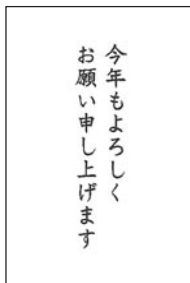 今年もよろしく
お願い申し上げます